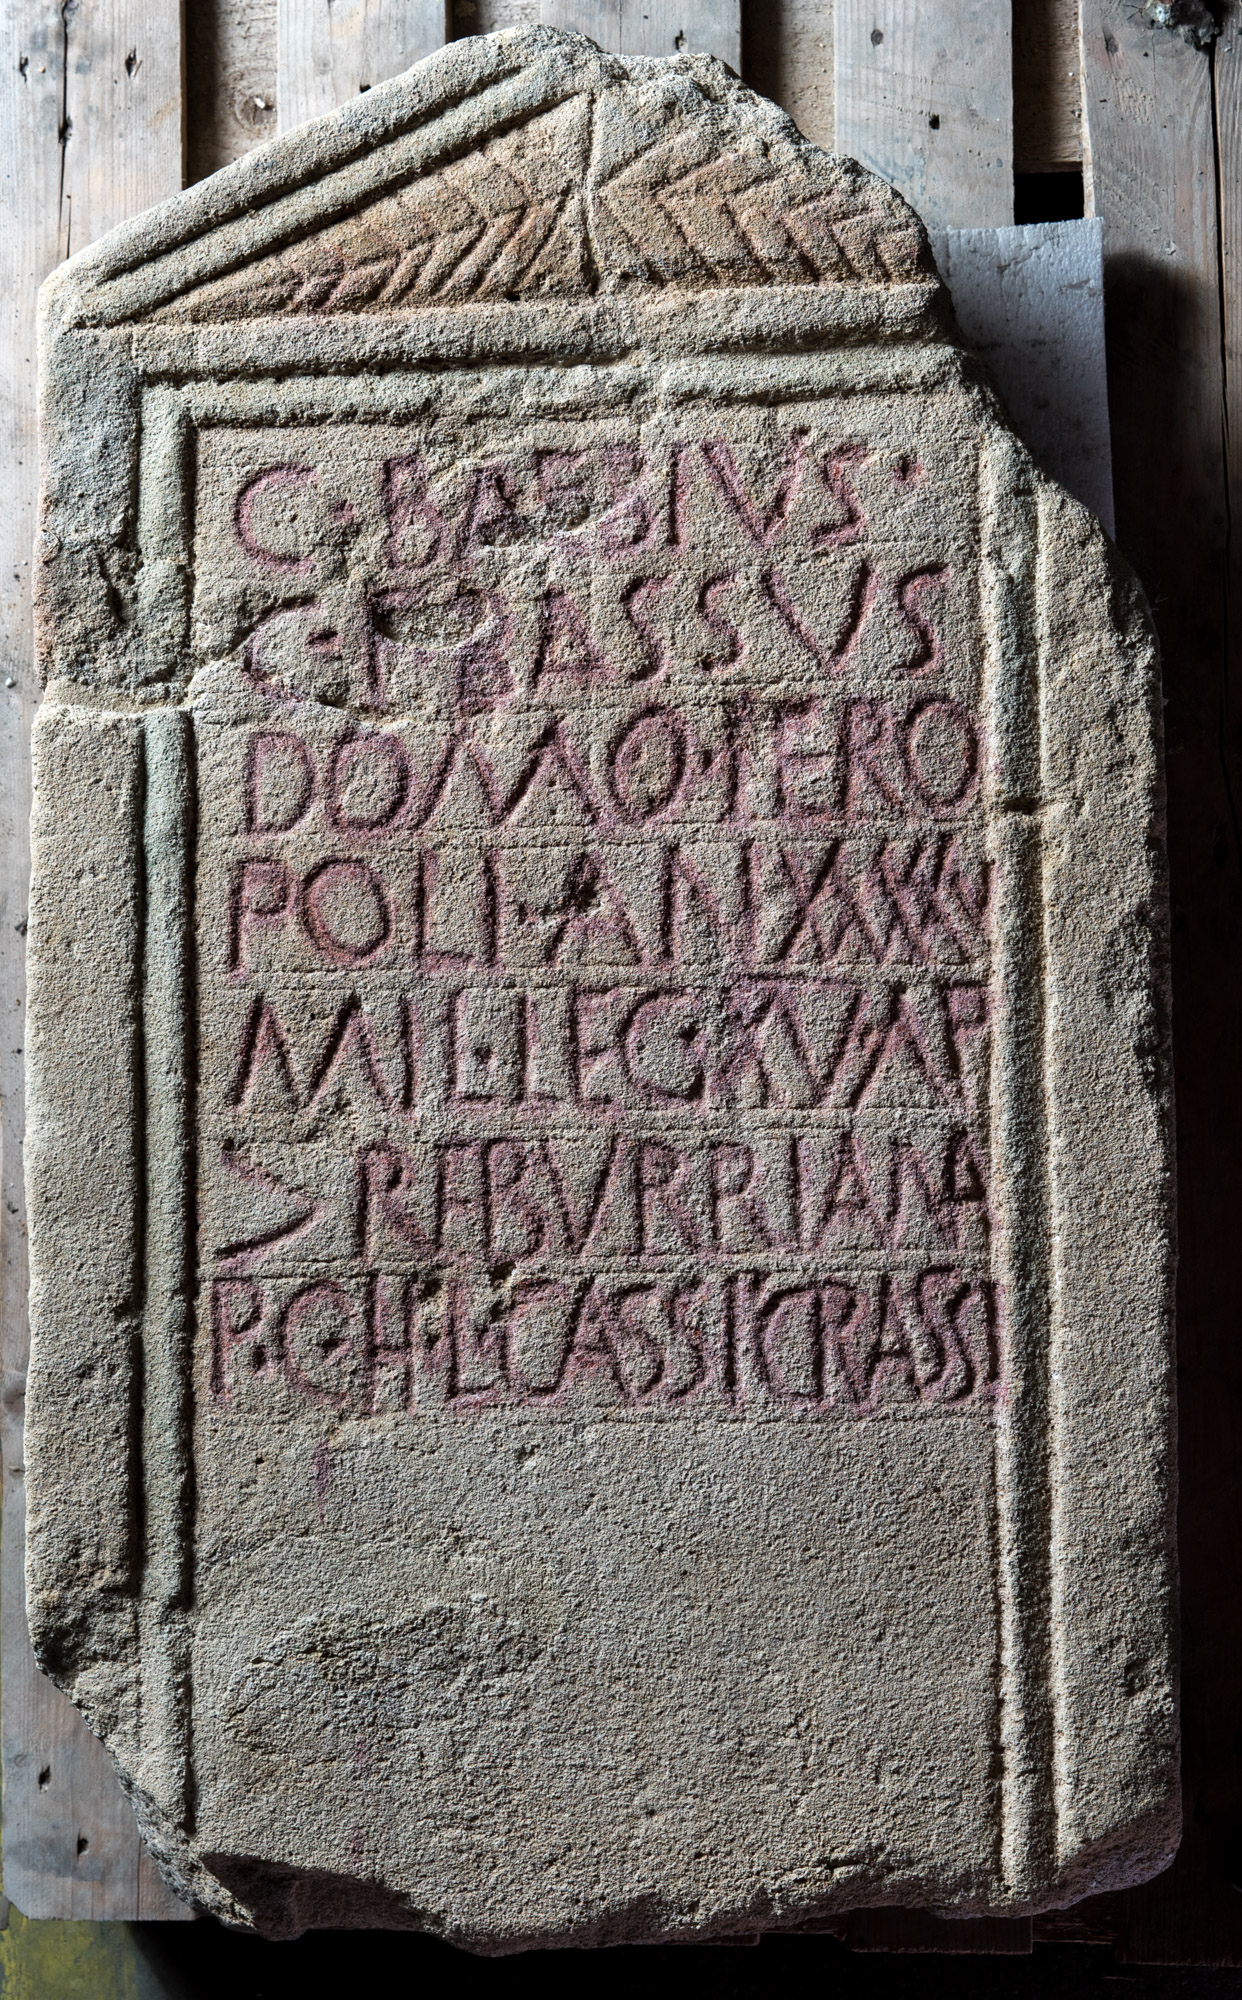 C·BAEBIVS·
C·F·BASSVS
DOMO·IERO
POLI·AN XXXV
MIL·LEG·XV·AP
> REBVRRIANA
P·C·H·L·CASSI·CRASSI